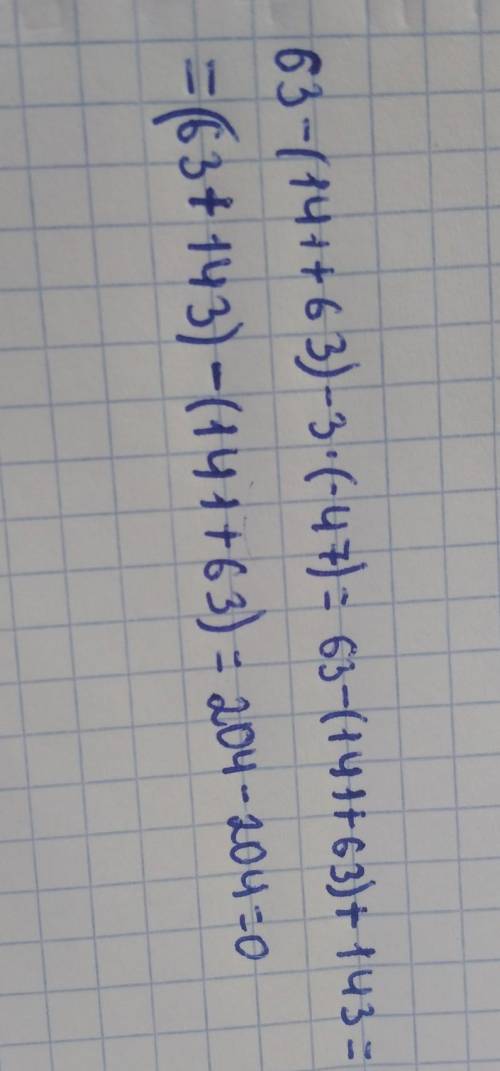 63-(141+63)-3·(-47)=63-(141+63)+143=
=(63+143)-(141+63)=204-204=0